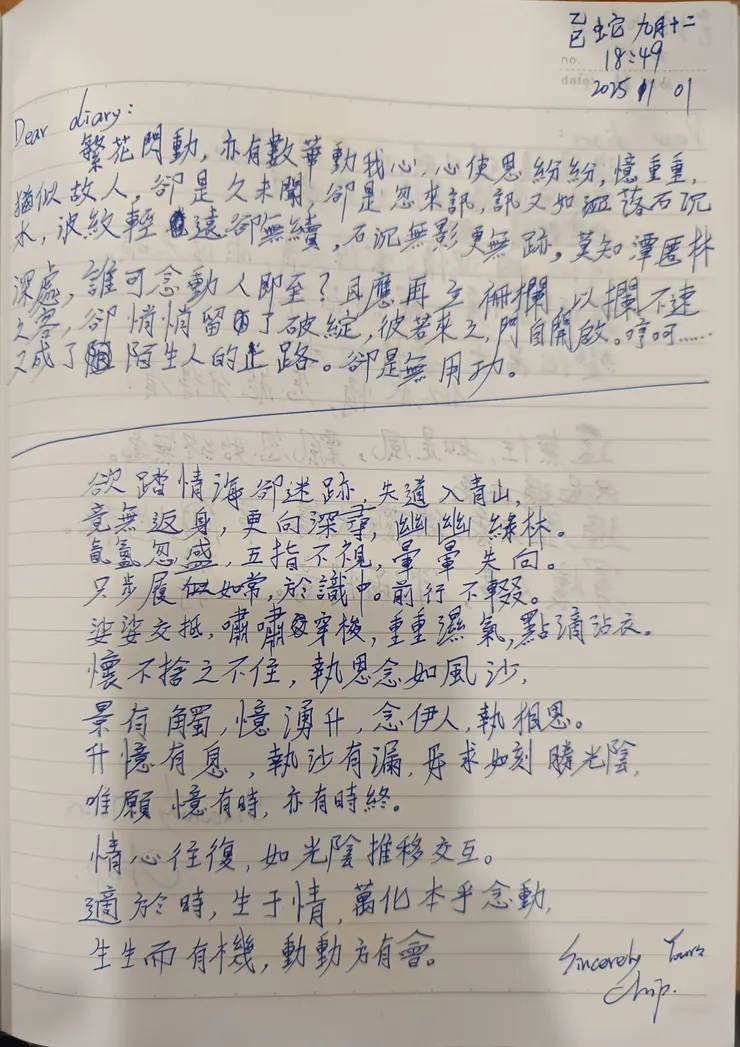 乙巳 蛇 九月十二
no. 18:49
date: 2025 11 01
Dear diary:
繁花閃動,亦有數華動我心,心使思紛紛,憶重重,
猶似故人,卻是久未聞,卻是忽來訊,訊又如 落石沉
水,波紋輕 遠卻無續,石沉無影更無跡。莫知潭匿林
深處,誰可念動人即至?且應再立柵欄,以攔不速
之客,卻悄悄留 了破綻,彼若來之,門自開啟。哼呵……
又成了 陌生人的 路。卻是無用功。
欲踏情海卻迷跡,失道入青山,
竟無返身,更向深尋,幽幽綠林。
氤氳忽盛,五指不視,暈暈失向。
只步履似如常,於識中。前行不輟。
娑娑交抵,嘯嘯穿梭,重重濕氣,點滴沾衣。
懷不捨之不住,執思念如風沙,
景有觸,憶湧升,念伊人,執相思。
升憶有息,執沙有漏,毋求如刻勝光陰,
唯願憶有時,亦有時終。
情心往復,如光陰推移交互。
適於時,生于情,萬化本乎念動,
生生而有機,動動方有會。
Sincerely Yours